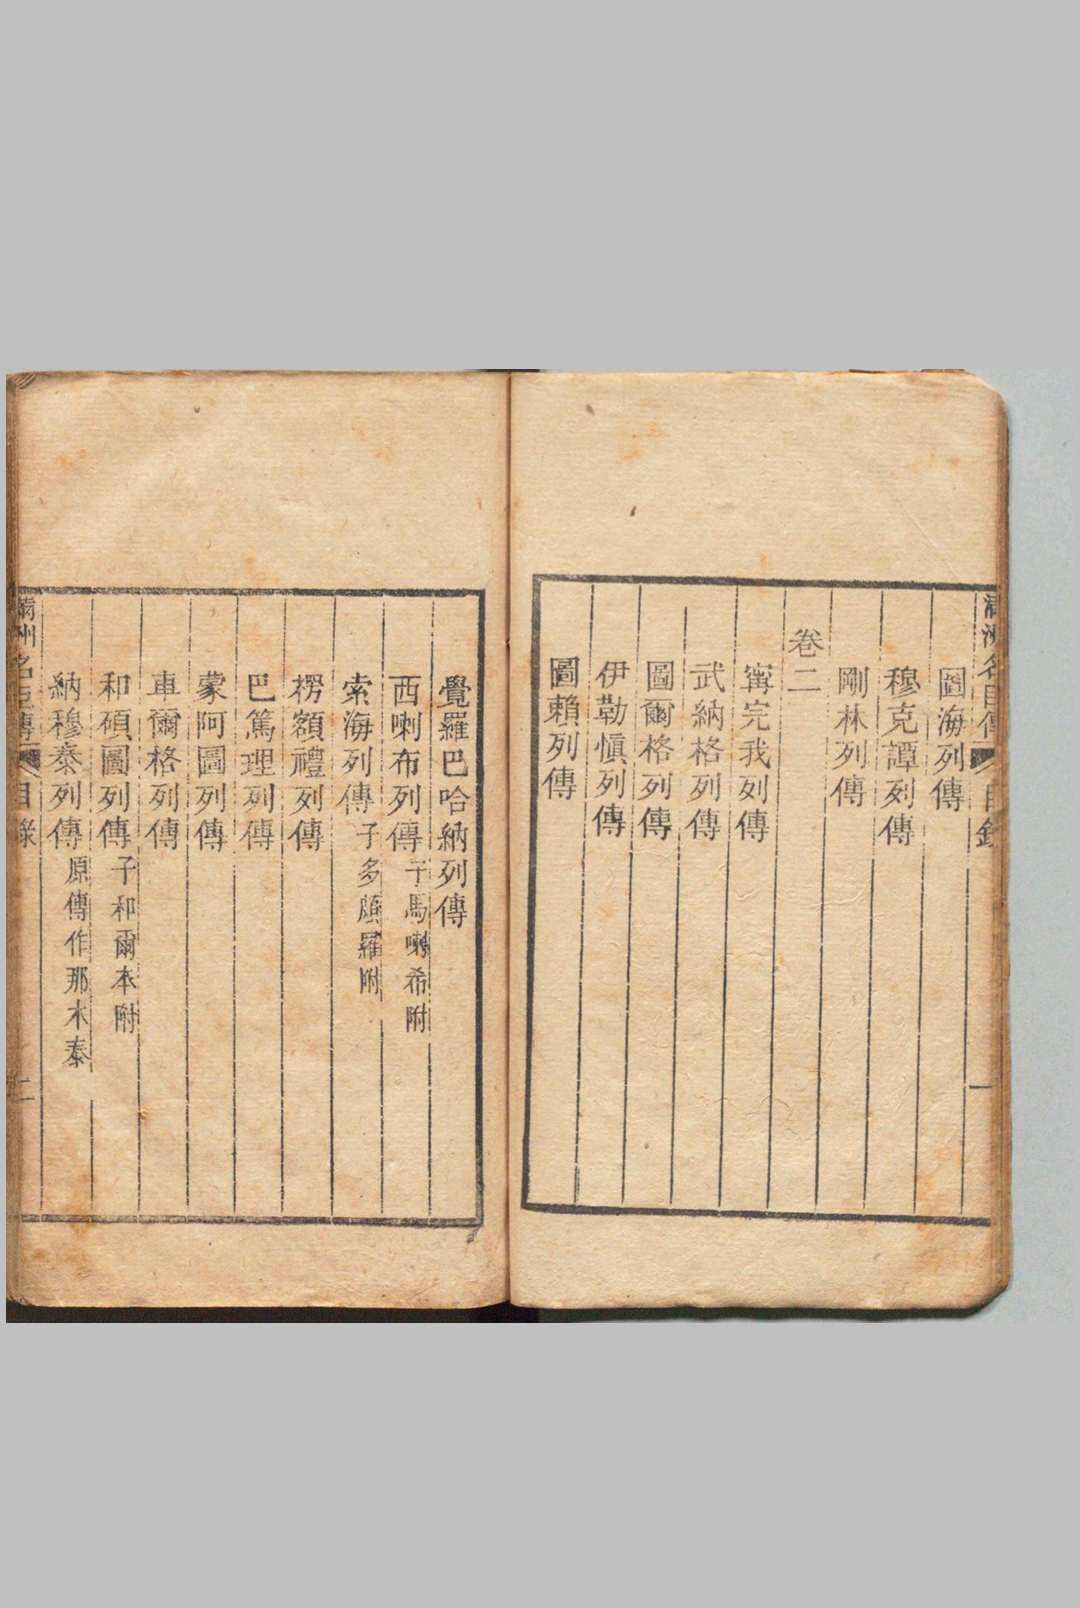 滿洲名臣傳 目錄 一
圖海列傳
穆克譚列傳
剛林列傳
卷二
甯完我列傳
武納格列傳
圖爾格列傳
伊勒慎列傳
圖賴列傳
覺羅巴哈納列傳
西喇布列傳 子馬喇希附
索海列傳 子多頗羅附
楞額禮列傳
巴篤理列傳
蒙阿圖列傳
車爾格列傳
和碩圖列傳 子和爾本附
納穆泰列傳 原傳作那木泰
滿州名臣傳 目錄